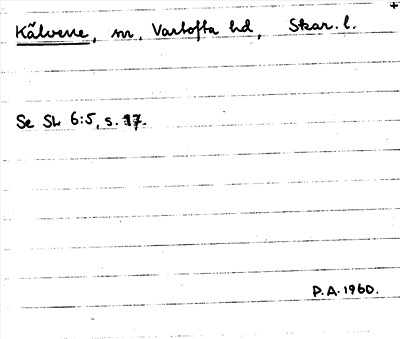 Kålvene, m, Vartofta hd, Skar. l.
Se Sk 6:5, s. 17.
P.A. 1960.